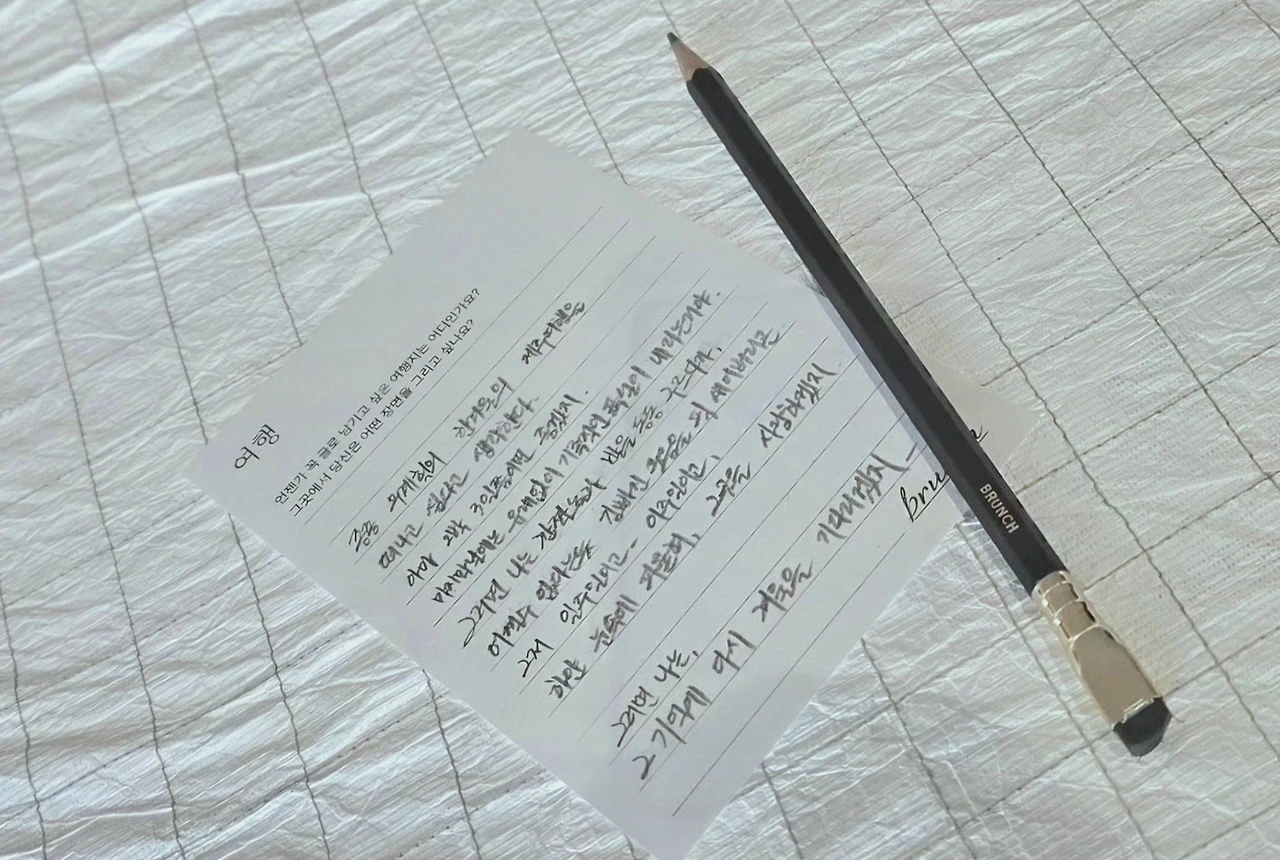 여행
언젠가 꼭 글로 남기고 싶은 여행지는 어디인가요?
그곳에서 당신은 어떤 장면을 그리고 싶나요?
종종 무계획의 한겨울의 제주여행을
떠나고 싶다고 생각한다.
아마 2박 3일쯤이면 좋겠지.
마지막날에는 유례없이 기록적인 폭설이 내리는거야.
그러면 나는 발을 동동 구르다가,
어쩔수 없다는듯 김빠진 웃음을 픽 새어버리곤
그저 일주일이고- 이주일이고,
하얀 눈속에 파묻혀, 그곳을 시상하겠지.
그러면 나는,
그 기억에 다시 겨울을 기대하겠지-
BRUNCH